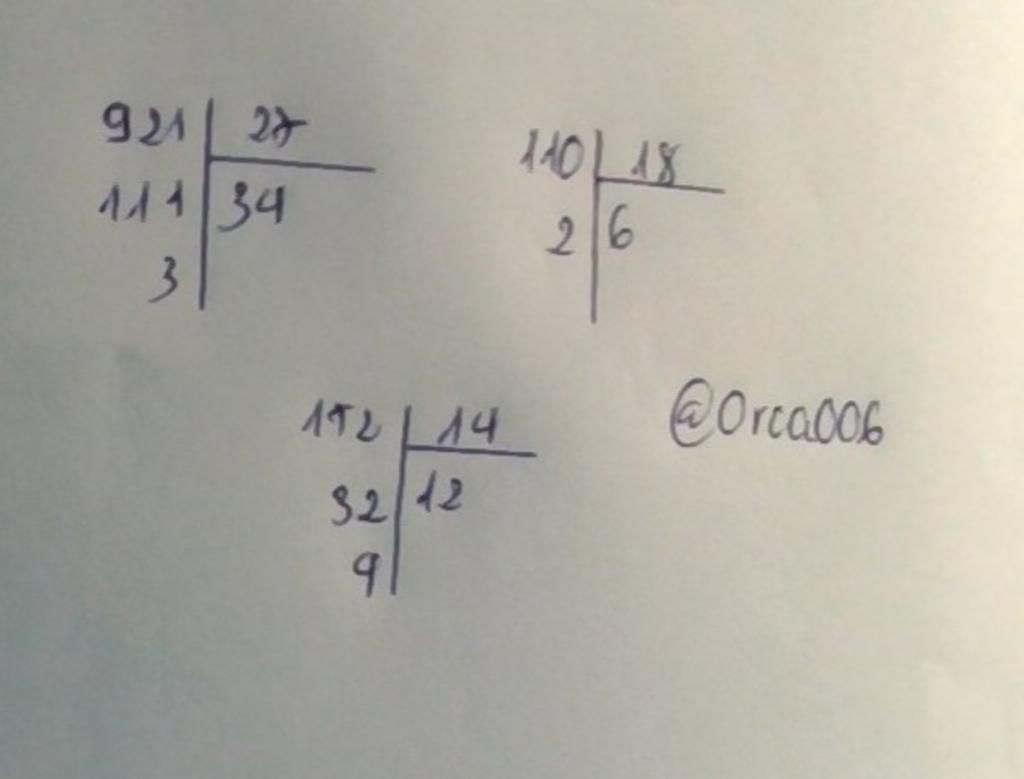 921 27
111 34
3
110 18
2 6
172 14
32 12
4
@Orca006